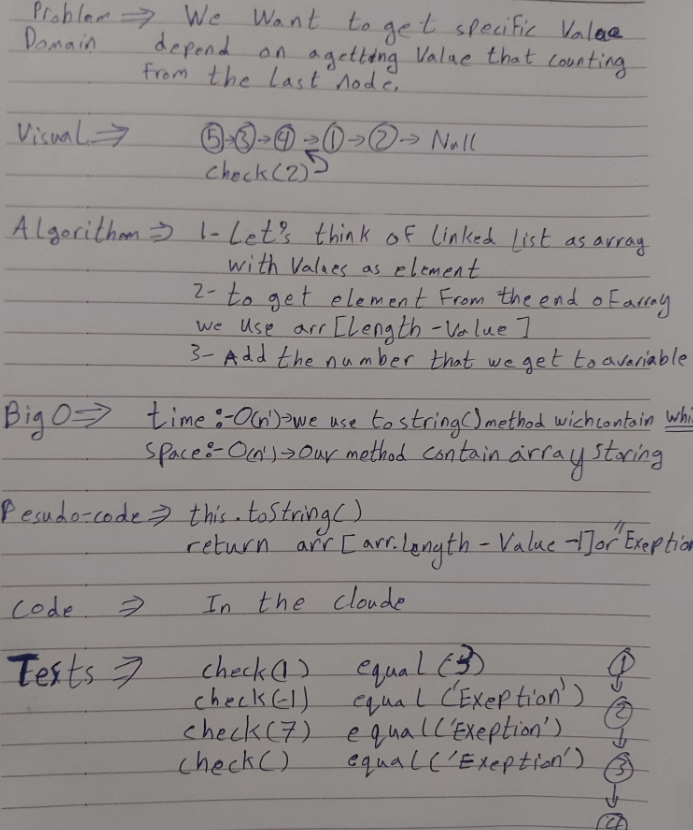 Problem ⇒ We Want to get specific Value
Domain depend on a getting Value that counting
from the last node.
Visual ⇒ 5→3→4→1→2→ Null
check(2)
Algorithm ⇒ 1- Let's think of linked list as array
with Values as element
2- to get element From the end of array
we use arr[Length-Value]
3- Add the number that we get to avariable
Big O ⇒ time :-O(n')→we use to string() method wich contain whi
Space:- O(n')→Our method contain array storing
Pesudo-code ⇒ this.toString()
return arr[arr.length - Value -1] or "Exeption
code ⇒ In the cloude
Tests ⇒ check(1) equal(3) 1
check(-1) equal('Exeption') 2
check(7) equal('Exeption')
check() equal('Exeption') 3
4